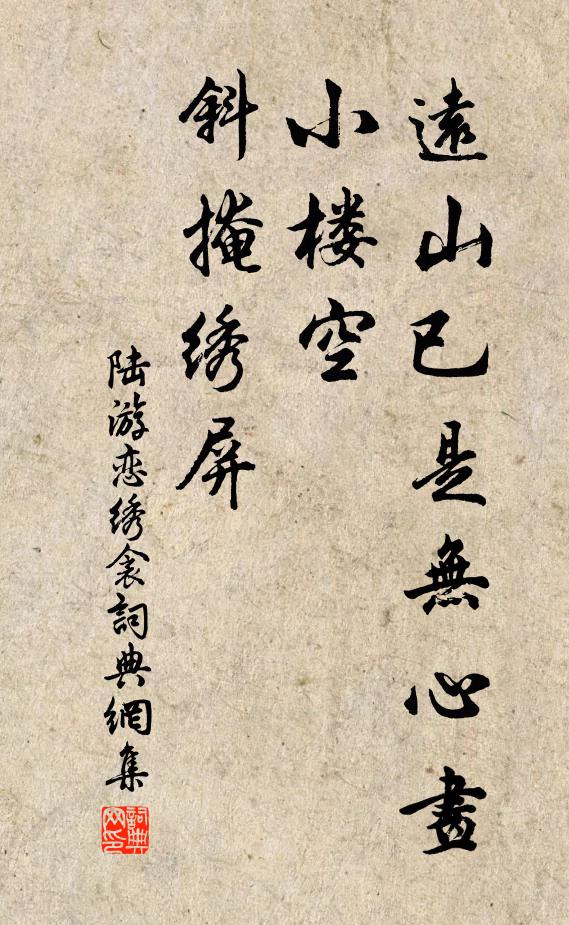 遠山已是無心畫
小楼空
斜掩绣屏
陆游恋绣衾詞典網集
詞典网印